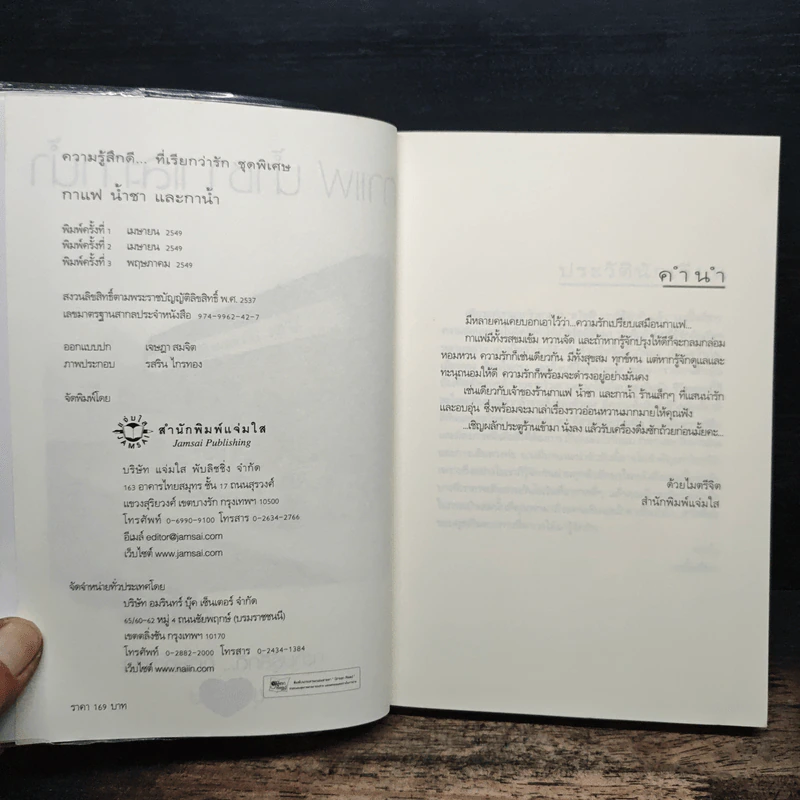 ความรู้สึกดี... ที่เรียกว่ารัก ชุดพิเศษ
กาแฟ น้ำชา และกาน้ำ
พิมพ์ครั้งที่ 1 เมษายน 2549
พิมพ์ครั้งที่ 2 เมษายน 2549
พิมพ์ครั้งที่ 3 พฤษภาคม 2549
สงวนลิขสิทธิ์ตามพระราชบัญญัติลิขสิทธิ์ พ.ศ. 2537
เลขมาตรฐานสากลประจำหนังสือ 974-9962-42-7
ออกแบบปก เจษฎา สมจิต
ภาพประกอบ รสริน ไกรทอง
จัดพิมพ์โดย
แจ่มใส
JAMSAI
สำนักพิมพ์แจ่มใส
Jamsai Publishing
บริษัท แจ่มใส พับลิชชิ่ง จำกัด
163 อาคารไทยสมุทร ชั้น 17 ถนนสุรวงศ์
แขวงสุริยวงศ์ เขตบางรัก กรุงเทพฯ 10500
โทรศัพท์ 0-6990-9100 โทรสาร 0-2634-2766
อีเมล์ editor@jamsai.com
เว็บไซต์ www.jamsai.com
จัดจำหน่ายทั่วประเทศโดย
บริษัท อมรินทร์ บุ๊ค เซ็นเตอร์ จำกัด
65/60-62 หมู่ 4 ถนนชัยพฤกษ์ (บรมราชชนนี)
เขตตลิ่งชัน กรุงเทพฯ 10170
โทรศัพท์ 0-2882-2000 โทรสาร 0-2434-1384
เว็บไซต์ www.naiin.com
ราคา 169 บาท
คำนำ
มีหลายคนเคยบอกเอาไว้ว่า...ความรักเปรียบเสมือนกาแฟ...
กาแฟมีทั้งรสขมเข้ม หวานจัด และถ้าหากรู้จักปรุงให้ดีก็จะกลมกล่อม
หอมหวน ความรักก็เช่นเดียวกัน มีทั้งสุขสม ทุกข์ทน แต่หากรู้จักดูแลและ
ทะนุถนอมให้ดี ความรักก็พร้อมจะดำรงอยู่อย่างมั่นคง
เช่นเดียวกับเจ้าของร้านกาแฟ น้ำชา และกาน้ำ ร้านเล็กๆ ที่แสนน่ารัก
และอบอุ่น ซึ่งพร้อมจะมาเล่าเรื่องราวอ่อนหวานมากมายให้คุณฟัง
...เชิญผลักประตูร้านเข้ามา นั่งลง แล้วรับเครื่องดื่มซักถ้วยก่อนมั้ยคะ...
ด้วยไมตรีจิต
สำนักพิมพ์แจ่มใส